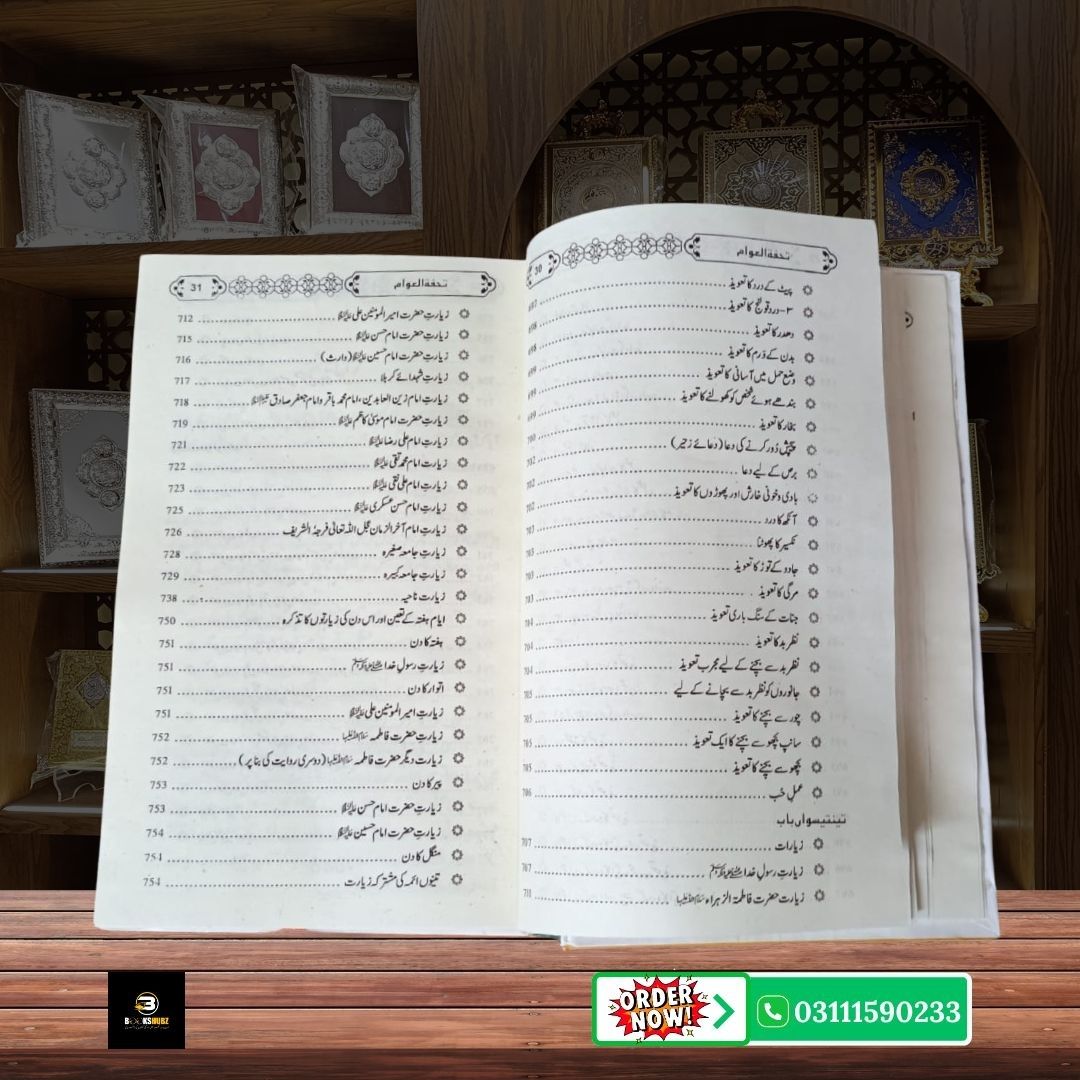 تحفة العوام
30
پیٹ کے درد کا تعویذ
۳-درد قولنج کا تعویذ
دھدر کا تعویذ 698
بدن کے ورم کا تعویذ 699
وضع حمل میں آسانی کا تعویذ 699
بندھے ہوئے شخص کو کھولنے کا تعویذ 699
بخار کا تعویذ 700
پیچش دُور کرنے کی دعا (دعائے زحیر) 702
برص کے لیے دعا 702
بادی و خونی خارش اور پھوڑوں کا تعویذ 702
آنکھ کا درد 703
نکسیر کا پھوٹنا 703
جادو کے توڑ کا تعویذ 703
مرگی کا تعویذ 703
جنات کے سنگ باری تعویذ 704
نظر بد کا تعویذ 704
نظر بد سے بچنے کے لیے مجرب تعویذ 704
جانوروں کو نظر بد سے بچانے کے لیے 705
چور سے بچنے کا تعویذ 705
سانپ بچھو سے بچنے کا ایک تعویذ 705
بچھو سے بچنے کا تعویذ 705
عملِ حُب 706
تینتیسواں باب
زیارات 707
زیارتِ رسولِ خدا صلی اللہ علیہ وآلہ وسلم 707
زیارت حضرت فاطمۃ الزہراء سلام اللہ علیہا 711
تحفة العوام
31
زیارتِ حضرت امیر المؤمنین علی علیہ السلام 712
زیارتِ حضرت امام حسن علیہ السلام 715
زیارتِ حضرت امام حسین علیہ السلام (وارث) 716
زیارتِ شہدائے کربلا 717
زیارتِ امام زین العابدین، امام محمد باقر و امام جعفر صادق علیہم السلام 718
زیارتِ حضرت امام موسیٰ کاظم علیہ السلام 719
زیارتِ امام علی رضا علیہ السلام 721
زیارت امام محمد تقی علیہ السلام 722
زیارتِ امام علی نقی علیہ السلام 723
زیارتِ امام حسن عسکری علیہ السلام 725
زیارتِ امام آخر الزمان عجل اللہ تعالیٰ فرجہُ الشریف 726
زیارتِ جامعہ صغیرہ 728
زیارتِ جامعہ کبیرہ 729
زیارت ناحیہ 738
ایام ہفتہ کے تعین اور اس دن کی زیارتوں کا تذکرہ 750
ہفتہ کا دن 751
زیارتِ رسولِ خدا صلی اللہ علیہ وآلہ وسلم 751
اتوار کا دن 751
زیارتِ امیر المؤمنین علی علیہ السلام 751
زیارتِ حضرت فاطمہ سلام اللہ علیہا 752
زیارت دیگر حضرت فاطمہ سلام اللہ علیہا (دوسری روایت کی بنا پر) 752
پیر کا دن 753
زیارتِ حضرت امام حسن علیہ السلام 753
زیارتِ حضرت امام حسین علیہ السلام 754
منگل کا دن 754
تینوں ائمہ کی مشترکہ زیارت 754
BOOKSHUBZ
ORDER NOW!
03111590233